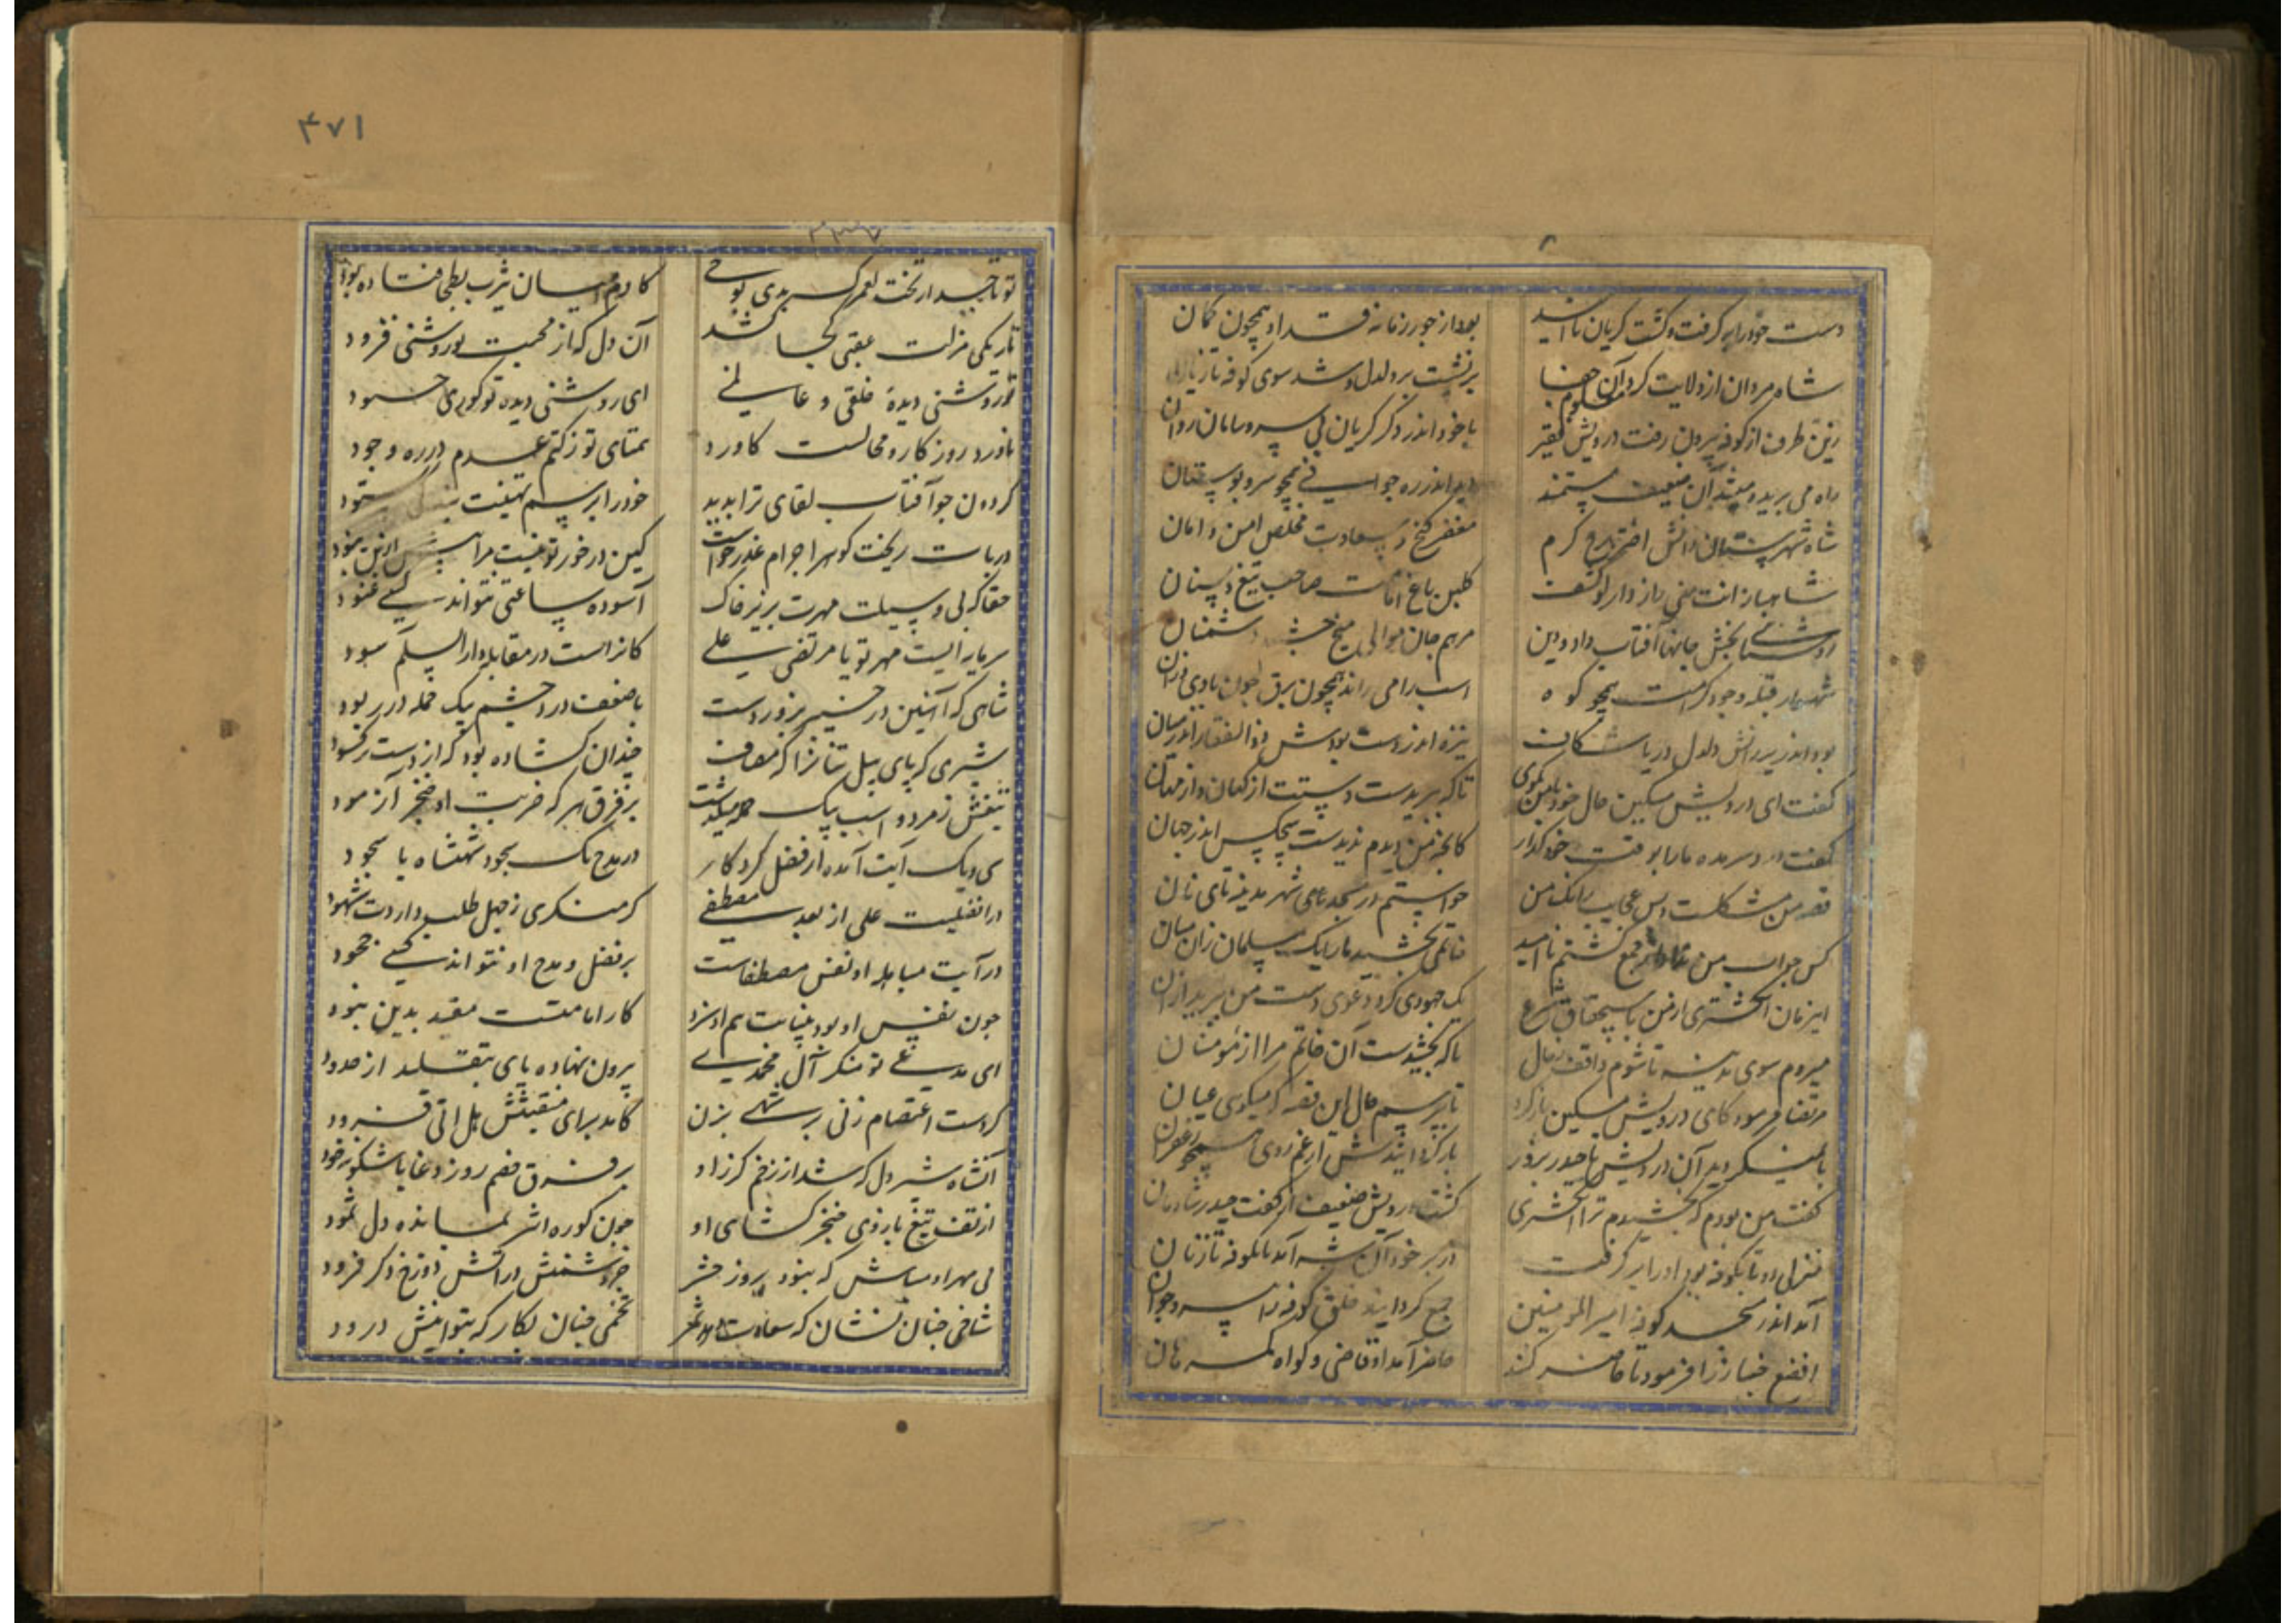 دست خود را برگرفت و گشت گریان ناامید
بود از جور زمانه قد او همچون کمان
شاه مردان از ولایت کرد آن معلوم
برنشست بر دلدل و شد سوی کوفه تازیان
زین طرف از کوفه بیرون رفت درویش فقیر
با خود اندر ذکر گریان بی سر و سامان روان
راه می برید و میشد آن ضعیف مستمند
دید اندر ره جوانی همچو سرو بوستان
شاه شهرستان دانش اختر برج کرم
گنج سعادت مخلص امن و امان
شاهباز انت منی رازدار لو کشف
گلبن باغ امامت صاحب تیغ و سنان
روشنائی بخش جانها آفتاب داد و دین
مرهم جان موالی دشمنان
شهسوار قبله وجود کرامت همچو کوه
اسب را می راند همچون برق
بود اندر زیر رانش دلدل دریا شکاف
نیزه اندر دست بودش ذوالفقار اندر میان
گفت ای درویش مسکین حال خود با من بگوی
تا که ببریدست دستت از کهان و از مهان
گفت درد سر مده ما را بوقت خود گذار
کانچه من دیدم ندیدست هیچکس اندر جهان
قصه من مشکلست و بس عجایب زانکه من
خواستم در مسجد جامی شهر مدینه تای نان
کس جواب من نداد گشتم ناامید
خاتمی بخشید ما را یک مسلمان زان میان
این زمان انگشتری از من شرع
یک جهودی کرد دعوی دست من ببرید از آن
میروم سوی مدینه تا شوم واقف ز حال
تا که بخشیدست آن خاتم مرا از مؤمنان
مرتضا فرمود کای درویش مسکین بازگرد
تا بپرسم حال این قصه که میگوی عیان
آن درویش با حیدر بزور
بازگردانیدش از غم روی همچو زعفران
گفت من بودم که بخشیدم ترا انگشتری
گشت درویش ضعیف از گفت حیدر شادمان
منزلی بود تا بکوفه بود او را برگرفت
آمد تا بکوفه تازنان
آمد اندر مسجد کوفه امیر المومنین
جمع گردانید خلق کوفه را
خبازرا فرمود تا حاضر کنند
حاضر آمد او قاضی و گواه همرهان
۴۷۱
تو تاجدار تخت لعمرک بدی
کادم میان یثرب و بطحا فتاده بود
تاریکی منزلت عقبی کجا کشد
آن دل که از محبت تو روشنی فزود
تو روشنی دیده خلقی و عالمی
ای روشنی دیده تو کوری حسود
ناورد روزگار و محالست کاورد
همتای تو ز کتم عدم در ره وجود
گردون چو آفتاب لقای ترا بدید
خود را برسم تهنیت ستود
دریات ریخت گوهر اجرام عذر خواست
کین در خور تو نیست مرا بیش ازین نبود
حقا که بی وسیلت مهرت بزیر خاک
آسوده ساعتی نتواند کسی غنود
سرمایه ایست مهر تو یا مرتضی علی
کانراست در مقابله دار السلم سود
شاهی که آهنین در خیبر بزور دست
با ضعف درد چشم بیک حمله در ربود
شیری که پای پیل تنان را گه مصاف
چندان گشاده بود که از دست رکود
تیغش ز مرد و اسب بیک حمله میگذشت
بر فرق هر که ضربت او خنجر آزمود
سی و یک آیت آمده از فضل کردگار
در مدح یک سجود شهنشاه با سجود
در افضلیت علی از بعد مصطفی
گر منکری ز جهل طلب داردت شهود
در آیت مباهله او نفس مصطفاست
بر فضل و مدح او نتواند کسی جحود
چون نفس او بود بنیابت هم او سزد
کار امامتست مقید بدین نبود
ای مدعی تو منکر آل محمدی
بیرون نهاده پای بتقلید از حدود
گر دست اعتصام زنی بر شهی بزن
کامد برای منقبتش هل اتی فرود
آنشاه شیردل که شد از زخم گرز او
بر فرق خصم روز وغا با شکوه خود
از تف تیغ بازوی خنجر گشای او
چون کوره اثر نمانده دل
بی مهر او مباش که نبود بروز حشر
جز دشمنش در آتش دوزخ دگر فرود
شاخی چنان نشان که سعادت دهد ثمر
تخمی چنان بکار که بتوانیش درود